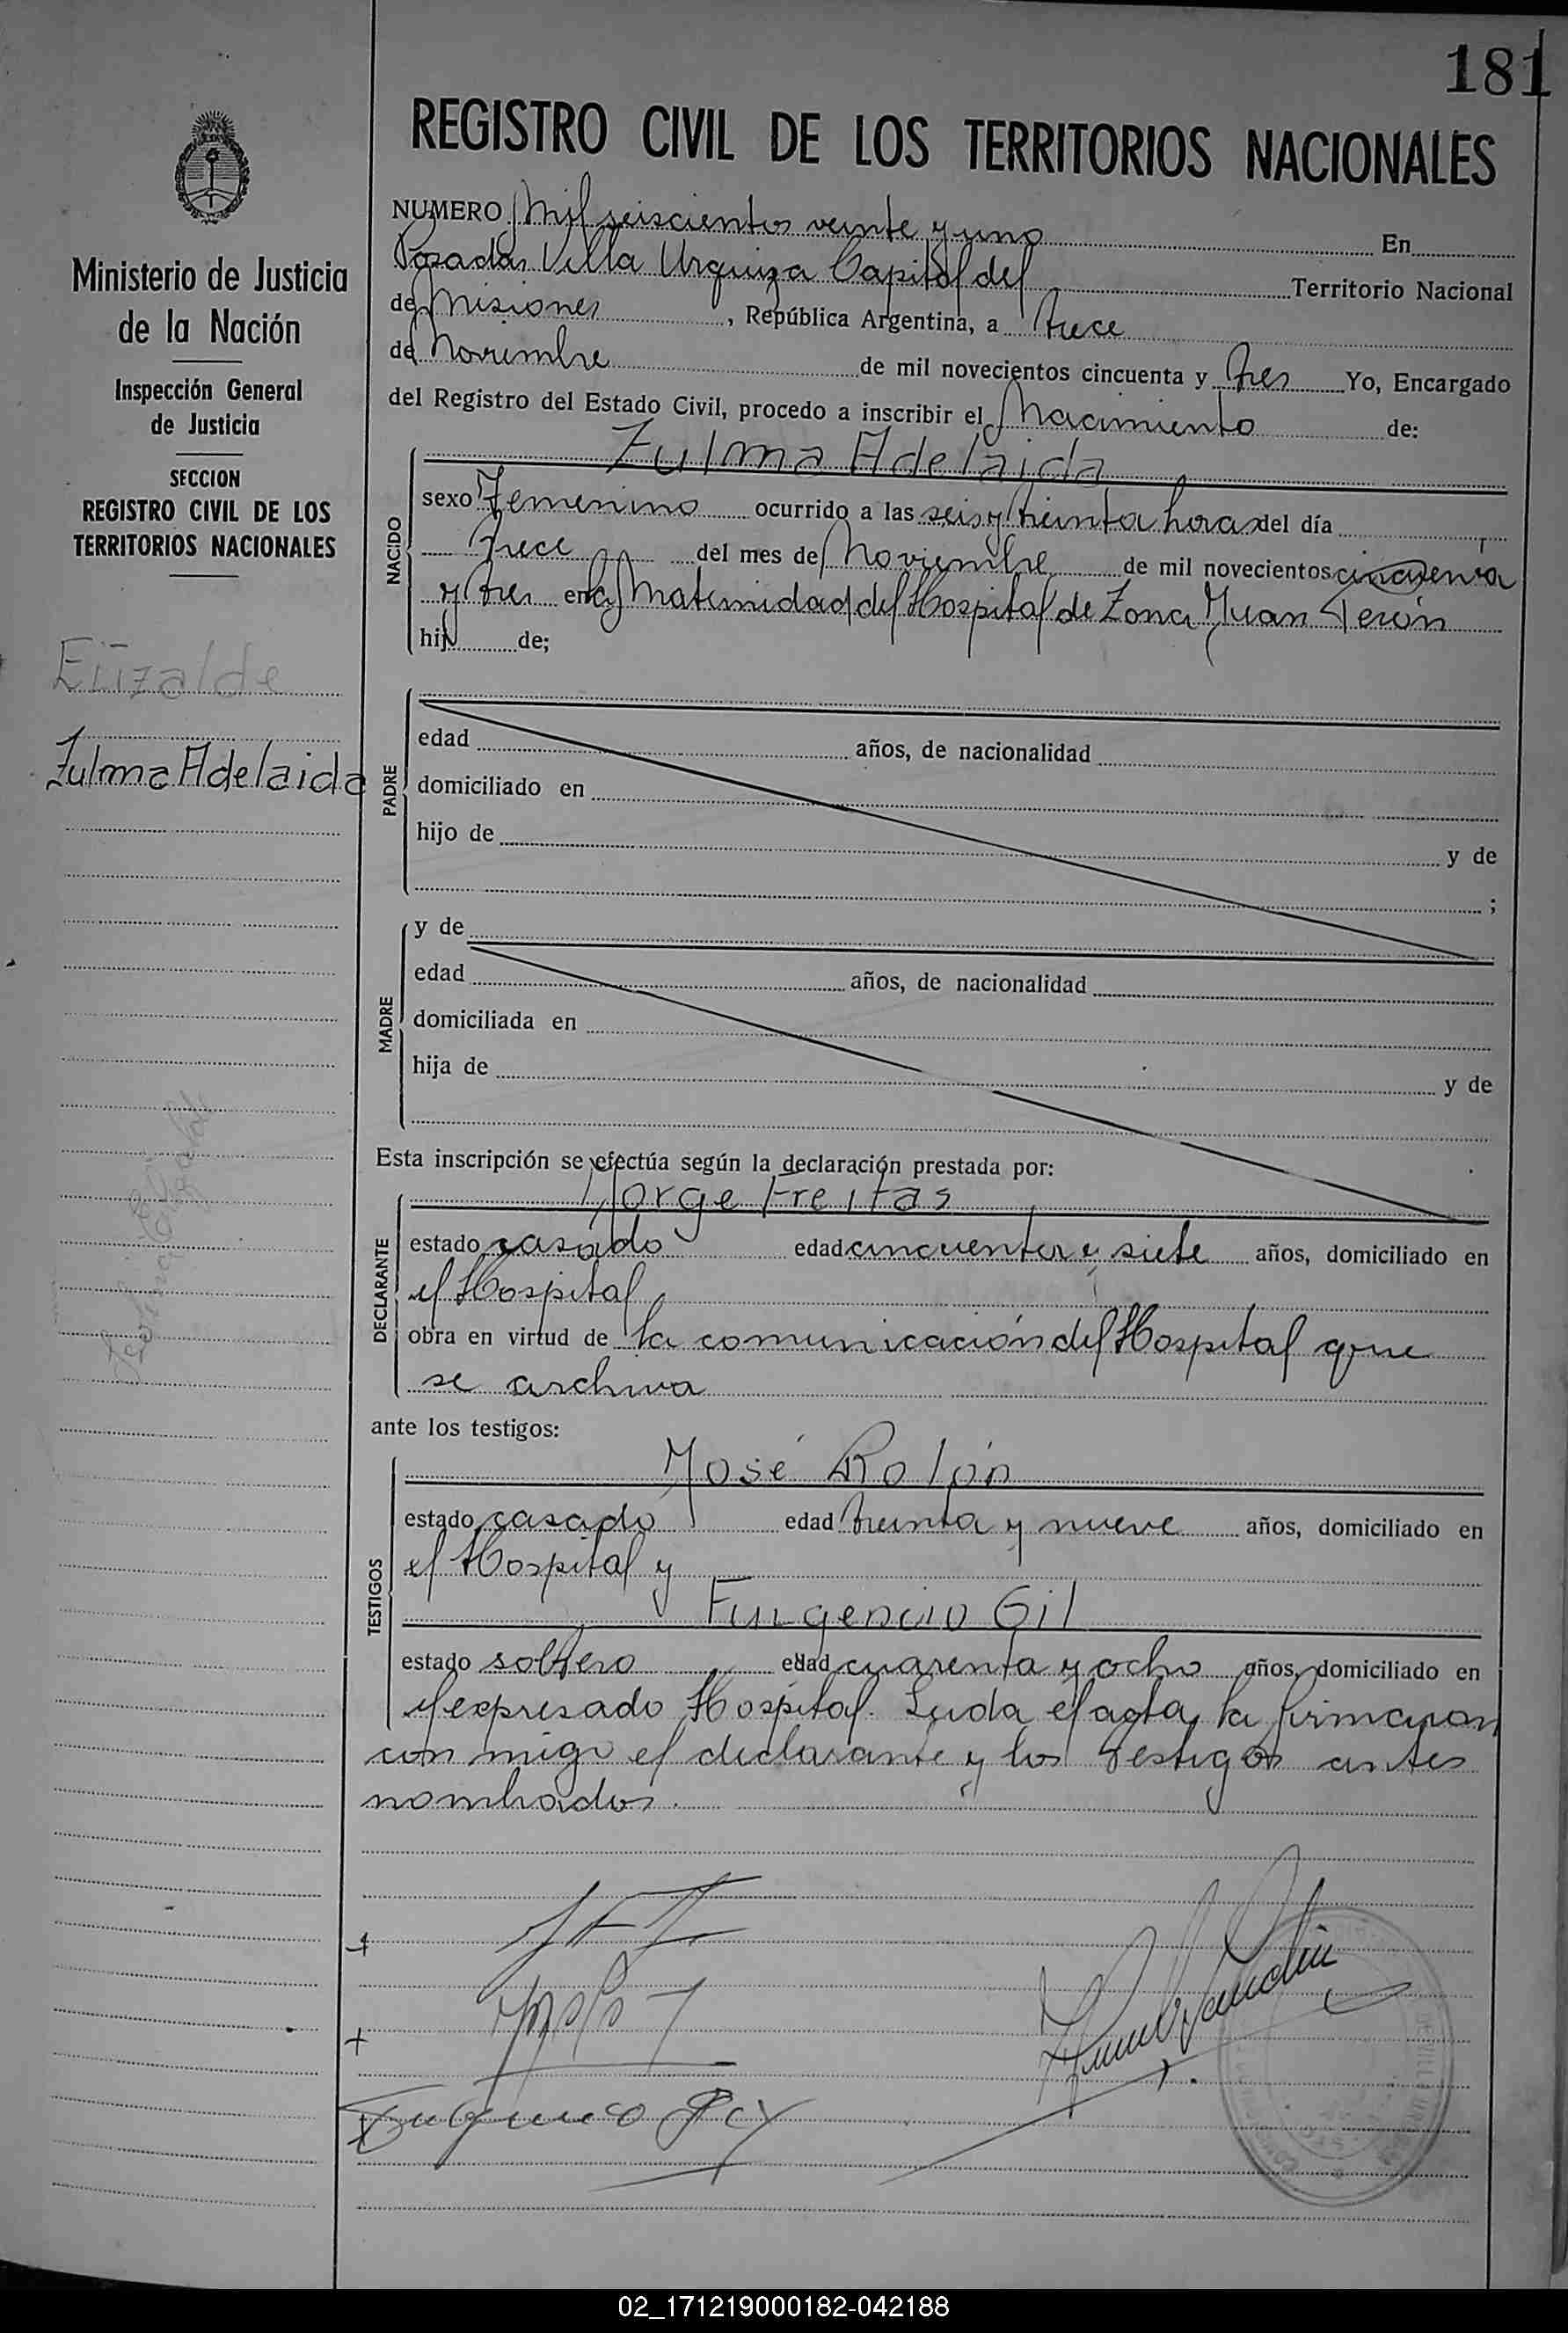 181
REGISTRO CIVIL DE LOS TERRITORIOS NACIONALES
Ministerio de Justicia
de la Nación
Inspección General
de Justicia
SECCION
REGISTRO CIVIL DE LOS
TERRITORIOS NACIONALES
Elizalde
Zulma Adelaida
NUMERO Mil seiscientos veinte y uno En
Posadas Villa Urquiza Capital del Territorio Nacional
de Misiones, República Argentina, a trece
de Noviembre de mil novecientos cincuenta y tres Yo, Encargado
del Registro del Estado Civil, procedo a inscribir el Nacimiento de:
Zulma Adelaida
NACIDO
sexo Femenino ocurrido a las seis y treinta horas del día
trece del mes de Noviembre de mil novecientos cincuenta
y tres en la Maternidad del Hospital de Zona Juan Perón
hij de;
PADRE
edad años, de nacionalidad
domiciliado en
hijo de y de
;
MADRE
y de
edad años, de nacionalidad
domiciliada en
hija de y de
Esta inscripción se efectúa según la declaración prestada por:
Jorge Freitas
DECLARANTE
estado casado edad cincuenta y siete años, domiciliado en
el Hospital
obra en virtud de la comunicación del Hospital que
se archiva
ante los testigos:
José Rolón
TESTIGOS
estado casado edad treinta y nueve años, domiciliado en
el Hospital y
Fulgencio Gil
estado soltero edad cuarenta y ocho años, domiciliado en
el expresado Hospital. Leida el acta, la firmaron
con migo el declarante y los testigos antes
nombrados.
02_171219000182-042188